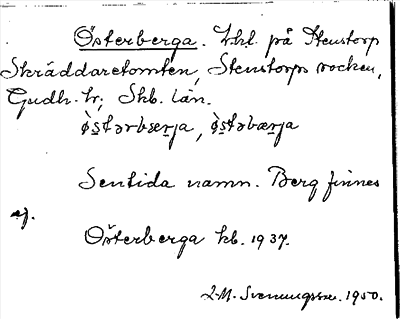 Österberga. Lhl. på Stenstorp
Skräddaretomten, Stenstorps socken,
Gudh. hr, Skb. län.
ò̀s̠tərbærja, ò̀s̠təbærja
Sentida namn. Berg finnes
ej.
Österberga kb. 1937.
2-M. Svenungsson. 1950.